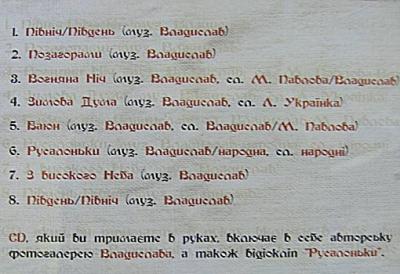 1. Північ/Південь (муз. Владислав)
2. Позагорами (муз. Владислав)
3. Вогняна Ніч (муз. Владислав, сл. М. Павлова/Владислав)
4. Зимова Дума (муз. Владислав, сл. Л. Українка)
5. Вагон (муз. Владислав, сл. Владислав/М. Павлова)
6. Русалоньки (муз. Владислав/народна, сл. народні)
7. З високого Неба (муз. Владислав)
8. Південь/Північ (муз. Владислав)
CD, який ви тримаєте в руках, включає в себе авторську
фотогалерею Владислава, а також відіокліп "Русалоньки".